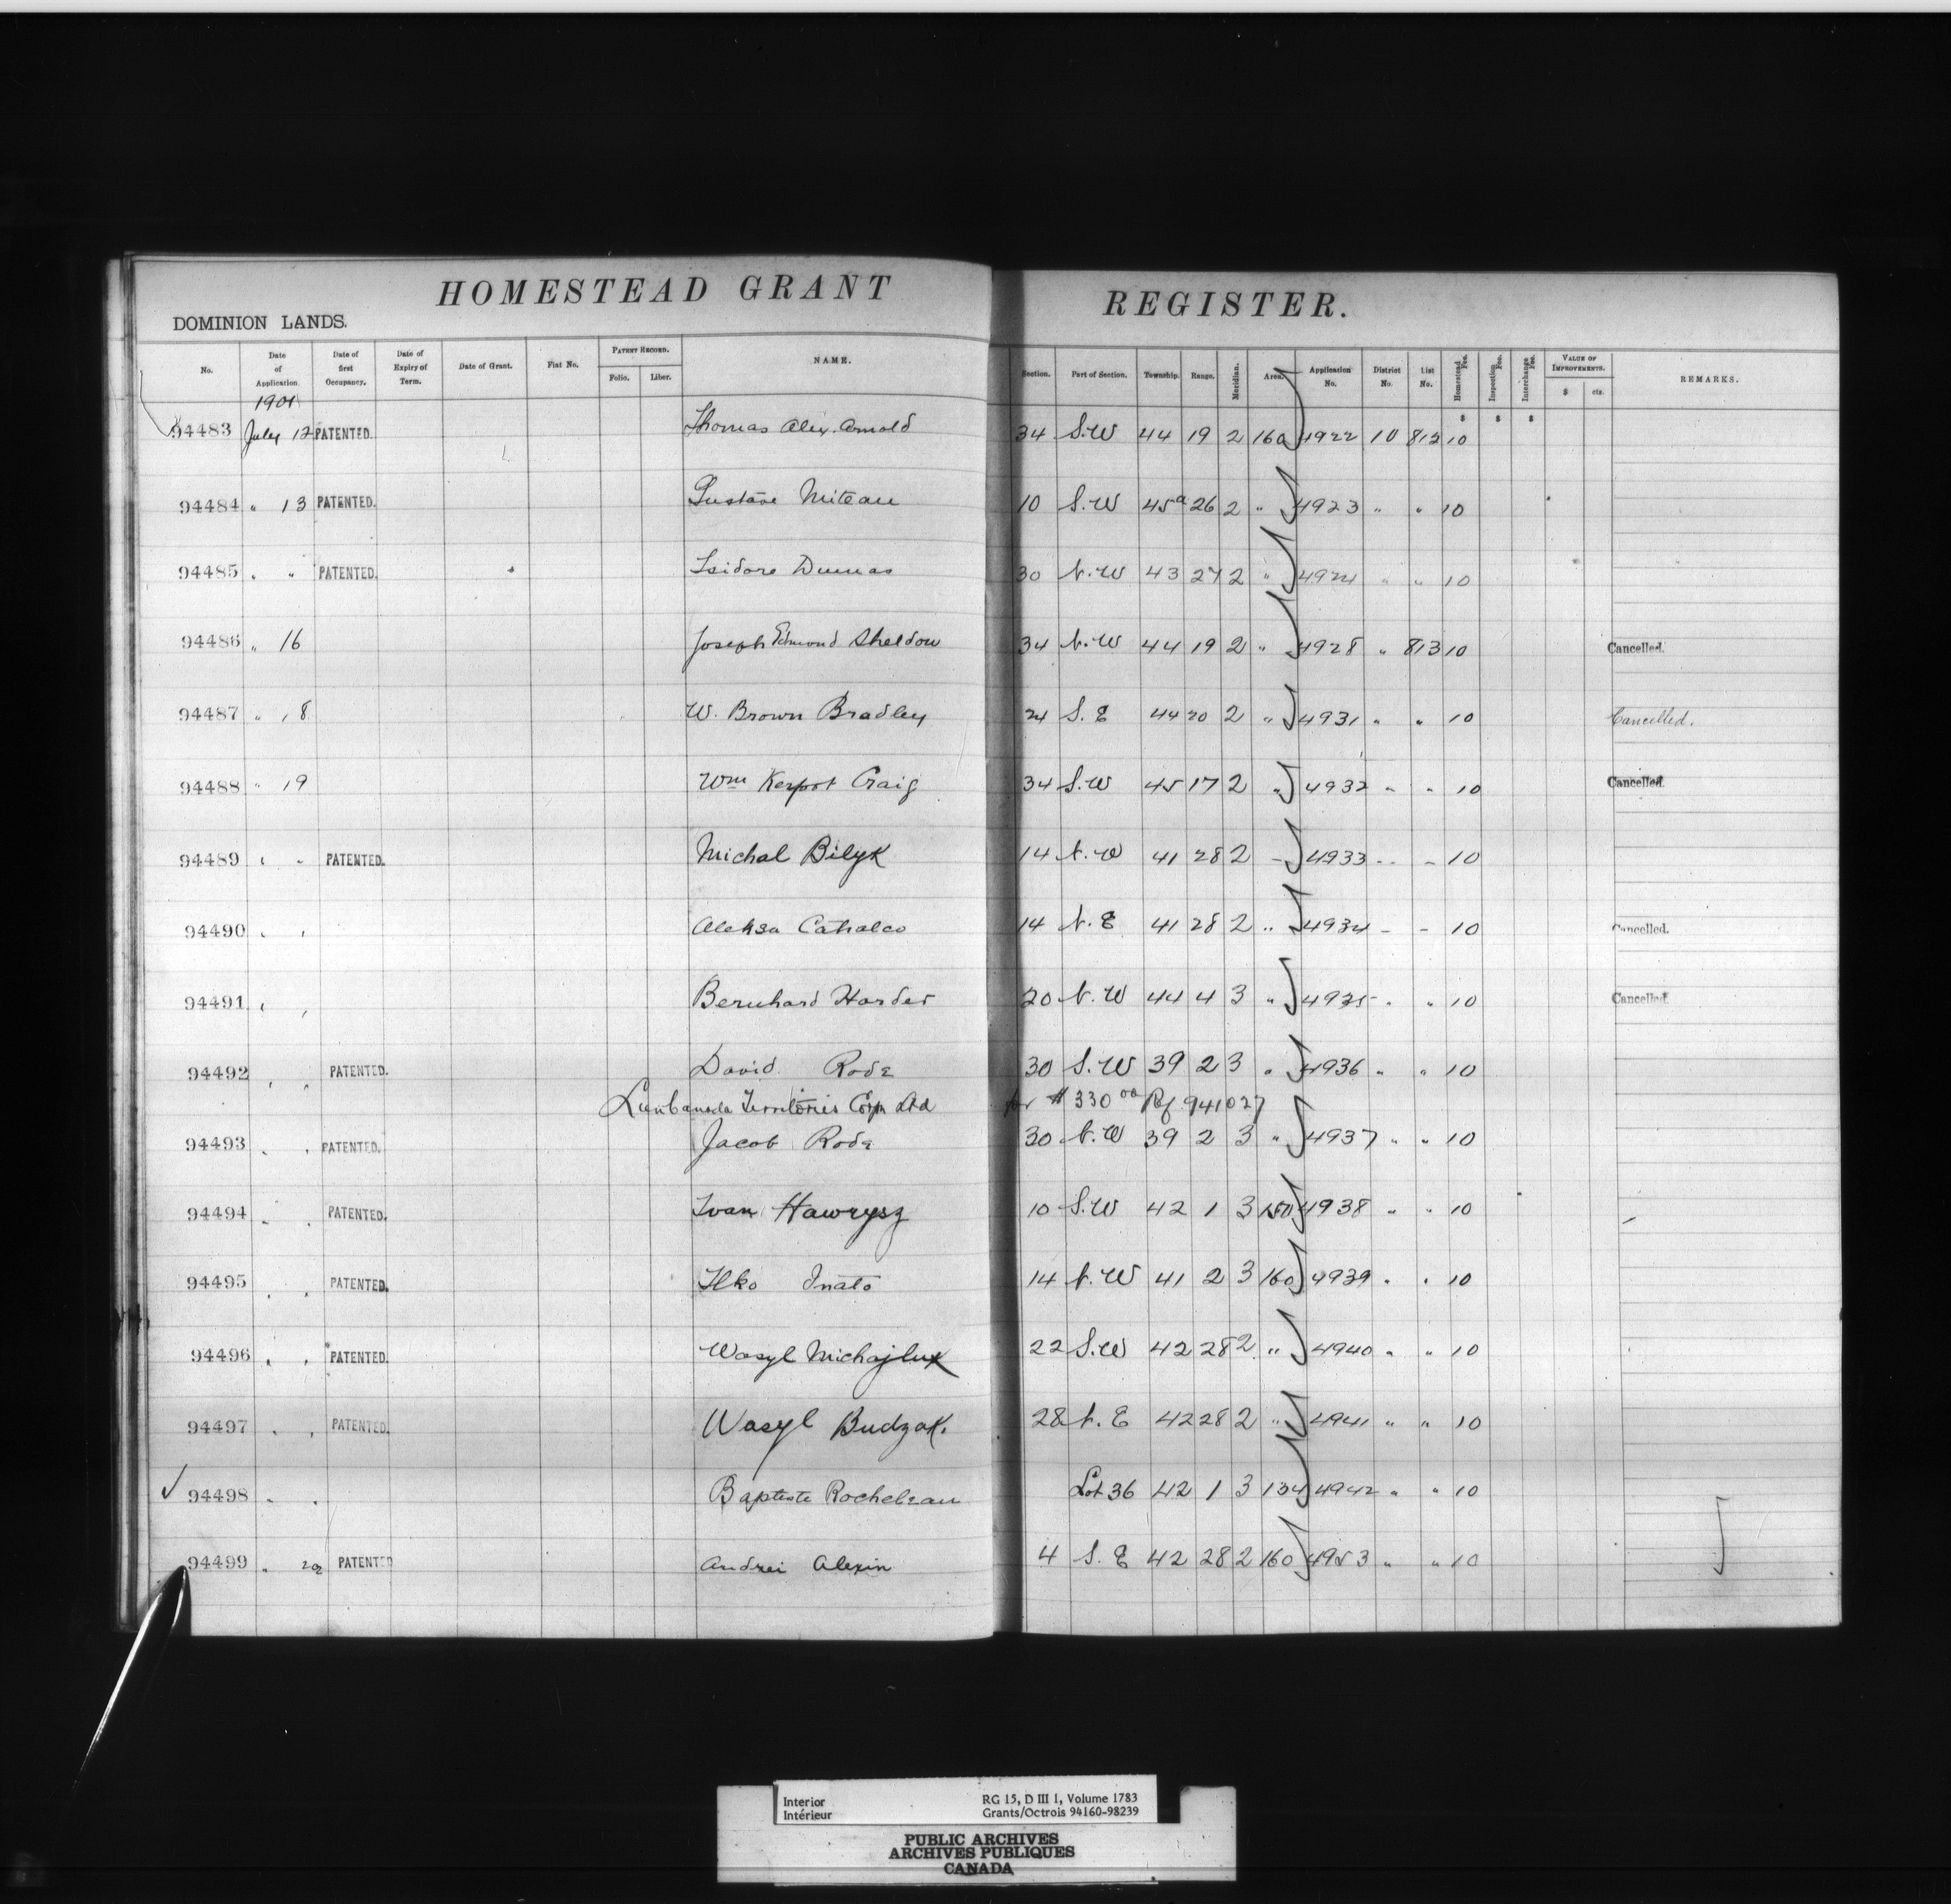 HOMESTEAD GRANT REGISTER.
DOMINION LANDS.
No. Date of Application. Date of first Occupancy. Date of Expiry of Term. Date of Grant. Fiat No. PATENT RECORD. Folio. Liber. NAME. Section. Part of Section. Township. Range. Meridian. Area. Application No. District No. List No. Homestead Fee. Inspection Fee. Interchange Fee. VALUE OF IMPROVEMENTS. $ cts. REMARKS.
1901
94483 July 12 PATENTED. Thomas Alex. Arnold 34 S.W 44 19 2 160 4922 10 812 10
94484 " 13 PATENTED. Gustave Miteau 10 S.W 45a 26 2 " 4923 " " 10
94485 " " PATENTED. Isidore Dumas 30 N.W 43 27 2 " 4924 " " 10
94486 " 16 Joseph Edmond Sheldow 34 N.W 44 19 2 " 4928 " 813 10 Cancelled.
94487 " 18 W. Brown Bradley 24 S.E 44 20 2 " 4931 " " 10 Cancelled.
94488 " 19 Wm Kerpot Craig 34 S.W 45 17 2 " 4932 " " 10 Cancelled.
94489 " " PATENTED. Michal Bilyk 14 N.W 41 28 2 " 4933 " " 10
94490 " " Aleksa Catralco 14 N.E 41 28 2 " 4934 " " 10 Cancelled.
94491 " " Bernhard Harder 20 N.W 44 4 3 " 4935 " " 10 Cancelled.
94492 " " PATENTED. David Rode 30 S.W 39 2 3 " 4936 " " 10
Territories Corpn Ltd for $330 00 Rf. 941027
94493 " " PATENTED. Jacob Rode 30 N.W 39 2 3 " 4937 " " 10
94494 " " PATENTED. Ivan Hawrysz 10 S.W 42 1 3 4938 " " 10
94495 " " PATENTED. Ilko Inato 14 N.W 41 2 3 160 4939 " " 10
94496 " " PATENTED. Wasyl Michajluk 22 S.W 42 28 2 " 4940 " " 10
94497 " " PATENTED. Wasyl Budzak. 28 N.E 42 28 2 " 4941 " " 10
94498 " " Baptiste Rocheleau Lot 36 42 1 3 134 4942 " " 10
94499 " 20 PATENTED Andrei Alexin 4 S.E 42 28 2 160 4953 " " 10
Interior
Intérieur
RG 15, D III 1, Volume 1783
Grants/Octrois 94160-98239
PUBLIC ARCHIVES
ARCHIVES PUBLIQUES
CANADA